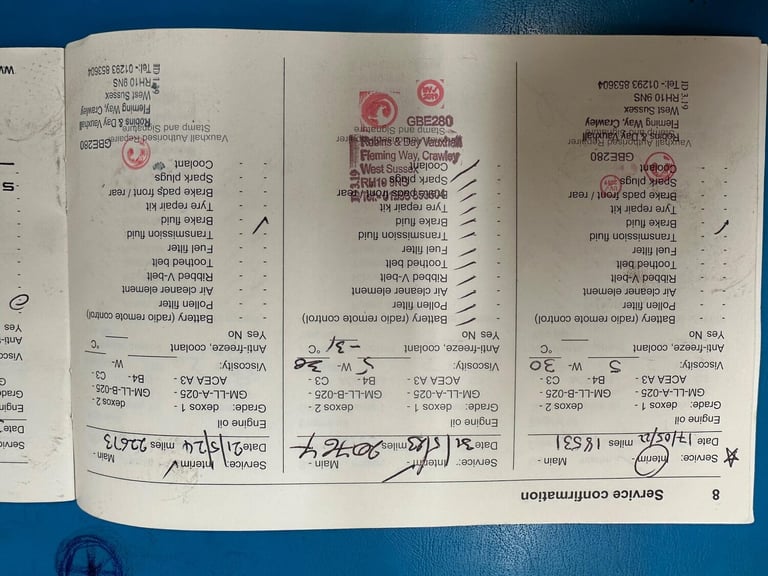 8 Service confirmation
Service: Interim - Main -
Date 17/05/22 miles 18531
Engine oil
Grade: dexos 1 - dexos 2 -
GM-LL-A-025 - GM-LL-B-025 -
ACEA A3 - B4 - C3 -
Viscosity: 5 W- 30
Anti-freeze, coolant °C
Yes No
- - Battery (radio remote control)
- - Pollen filter
- - Air cleaner element
- - Ribbed V-belt
- - Toothed belt
- - Fuel filter
- - Transmission fluid
- - Brake fluid
- - Tyre repair kit
- - Brake pads front / rear
- - Spark plugs
- - Coolant
GBE280
Robins & Day Vauxhall
Stamp and Signature
Fleming Way, Crawley
West Sussex
RH10 9NS
Tel:- 01293 853604
Service: Interim - Main -
Date 31/5/23 miles 20764
Engine oil
Grade: dexos 1 - dexos 2 -
GM-LL-A-025 - GM-LL-B-025 -
ACEA A3 - B4 - C3 -
Viscosity: 5 W- 30
Anti-freeze, coolant -31 °C
Yes No
- - Battery (radio remote control)
- - Pollen filter
- - Air cleaner element
- - Ribbed V-belt
- - Toothed belt
- - Fuel filter
- - Transmission fluid
- - Brake fluid
- - Tyre repair kit
- - Brake pads front / rear
- - Spark plugs
- - Coolant
Robins & Day Vauxhall
Fleming Way, Crawley
West Sussex
Tel:- 01293 853604
Stamp and Signature
GBE280
Service: Interim - Main -
Date 21/5/24 miles 22673
Engine oil
Grade: dexos 1 - dexos 2 -
GM-LL-A-025 - GM-LL-B-025 -
ACEA A3 - B4 - C3 -
Viscosity: W-
Anti-freeze, coolant °C
Yes No
- - Battery (radio remote control)
- - Pollen filter
- - Air cleaner element
- - Ribbed V-belt
- - Toothed belt
- - Fuel filter
- - Transmission fluid
- - Brake fluid
- - Tyre repair kit
- - Brake pads front / rear
- - Spark plugs
- - Coolant
GBE280
Vauxhall Authorised Repairer
Stamp and Signature
Robins & Day Vauxhall
Fleming Way, Crawley
West Sussex
RH10 9NS
Tel:- 01293 853604
Service
Date
Engine
Viscosi
Anti-f
Yes